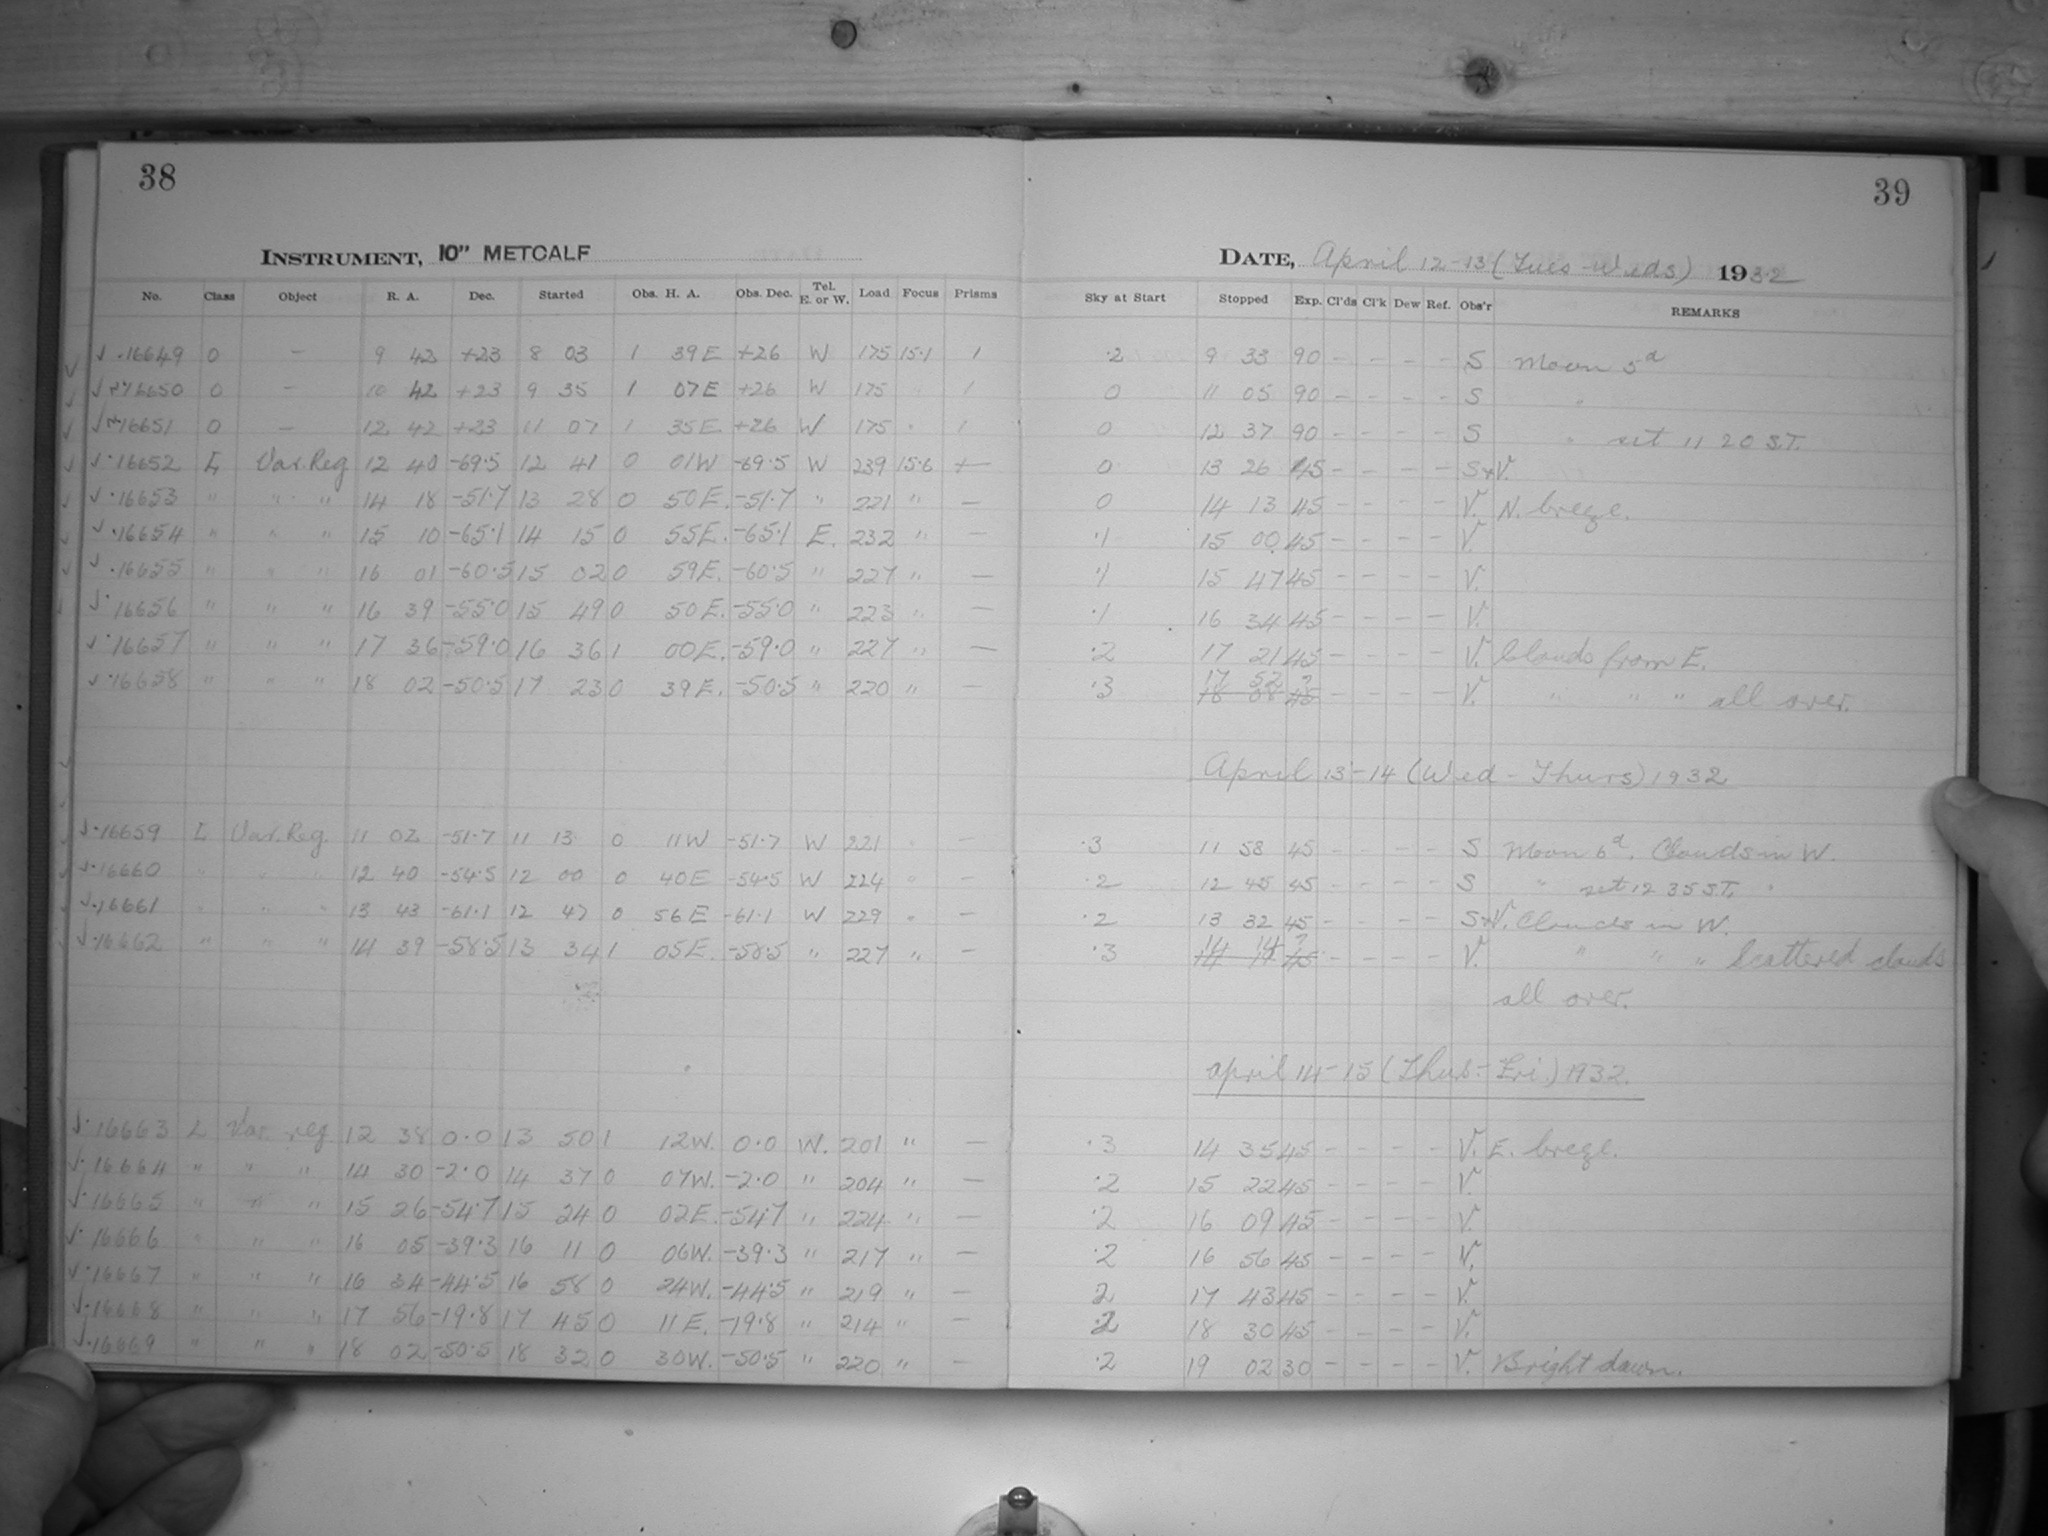 38
39
INSTRUMENT, 10" METCALF
DATE, April 12-13 (Tues-Weds) 1932
No. Class Object R. A. Dec. Started Obs. H. A. Obs. Dec. Tel. E. or W. Load Focus Prisms Sky at Start Stopped Exp. Cl'ds Cl'k Dew Ref. Obs'r REMARKS
16649 0 — 9 42 +23 8 03 1 39E +26 W 175 15.1 1 .2 9 33 90 - - - - S Moon 5d
16650 0 — 10 42 +23 9 35 1 07E +26 W 175 1 0 11 05 90 - - - - S "
16651 0 — 12 42 +23 11 07 1 35E +26 W 175 " 1 0 12 37 90 - - - - S " set 11 20 S.T.
16652 L Var. Reg 12 40 -69.5 12 41 0 01W -69.5 W 239 15.6 — 0 13 26 45 - - - - S+V.
16653 " " " 14 18 -51.7 13 28 0 50E. -51.7 " 221 " — 0 14 13 45 - - - - V. N. breeze.
16654 " " " 15 10 -65.1 14 15 0 55E. -65.1 E. 232 " — .1 15 00 45 - - - - V.
16655 " " " 16 01 -60.5 15 02 0 59E. -60.5 " 227 " — .1 15 47 45 - - - - V.
16656 " " " 16 39 -55.0 15 49 0 50E. -55.0 " 223 " — .1 16 34 45 - - - - V.
16657 " " " 17 36 -59.0 16 36 1 00E. -59.0 " 227 " — .2 17 21 45 - - - - V. Clouds from E.
17 52 ?
16658 " " " 18 02 -50.5 17 23 0 39E. -50.5 " 220 " — .3 18 08 45 - - - - V. " " " all over.
April 13-14 (Wed-Thurs) 1932
16659 L Var. Reg. 11 02 -51.7 11 13 0 11W -51.7 W 221 " — .3 11 58 45 - - - - S Moon 6d. Clouds in W.
16660 " " " 12 40 -54.5 12 00 0 40E -54.5 W 224 " — .2 12 45 45 - - - - S " set 12 35 S.T. "
16661 " " " 13 43 -61.1 12 47 0 56E -61.1 W 229 " — .2 13 32 45 - - - - S+V. Clouds in W.
14 14 ?
16662 " " " 14 39 -58.5 13 34 1 05E. -58.5 " 227 " — .3 14 45 - - - - V. " " " Scattered clouds
all over.
April 14-15 (Thurs-Fri.) 1932.
16663 L Var. reg 12 38 0.0 13 50 1 12W. 0.0 W. 201 " — .3 14 35 45 - - - - V. E. breeze.
16664 " " " 14 30 -2.0 14 37 0 07W. -2.0 " 204 " — .2 15 22 45 - - - - V.
16665 " " " 15 26 -54.7 15 24 0 02E. -54.7 " 224 " — .2 16 09 45 - - - - V.
16666 " " " 16 05 -39.3 16 11 0 06W. -39.3 " 217 " — .2 16 56 45 - - - - V.
16667 " " " 16 34 -44.5 16 58 0 24W. -44.5 " 219 " — 2 17 43 45 - - - - V.
16668 " " " 17 56 -19.8 17 45 0 11E. -19.8 " 214 " — .2 18 30 45 - - - - V.
16669 " " " 18 02 -50.5 18 32 0 30W. -50.5 " 220 " — .2 19 02 30 - - - - V. Bright dawn.